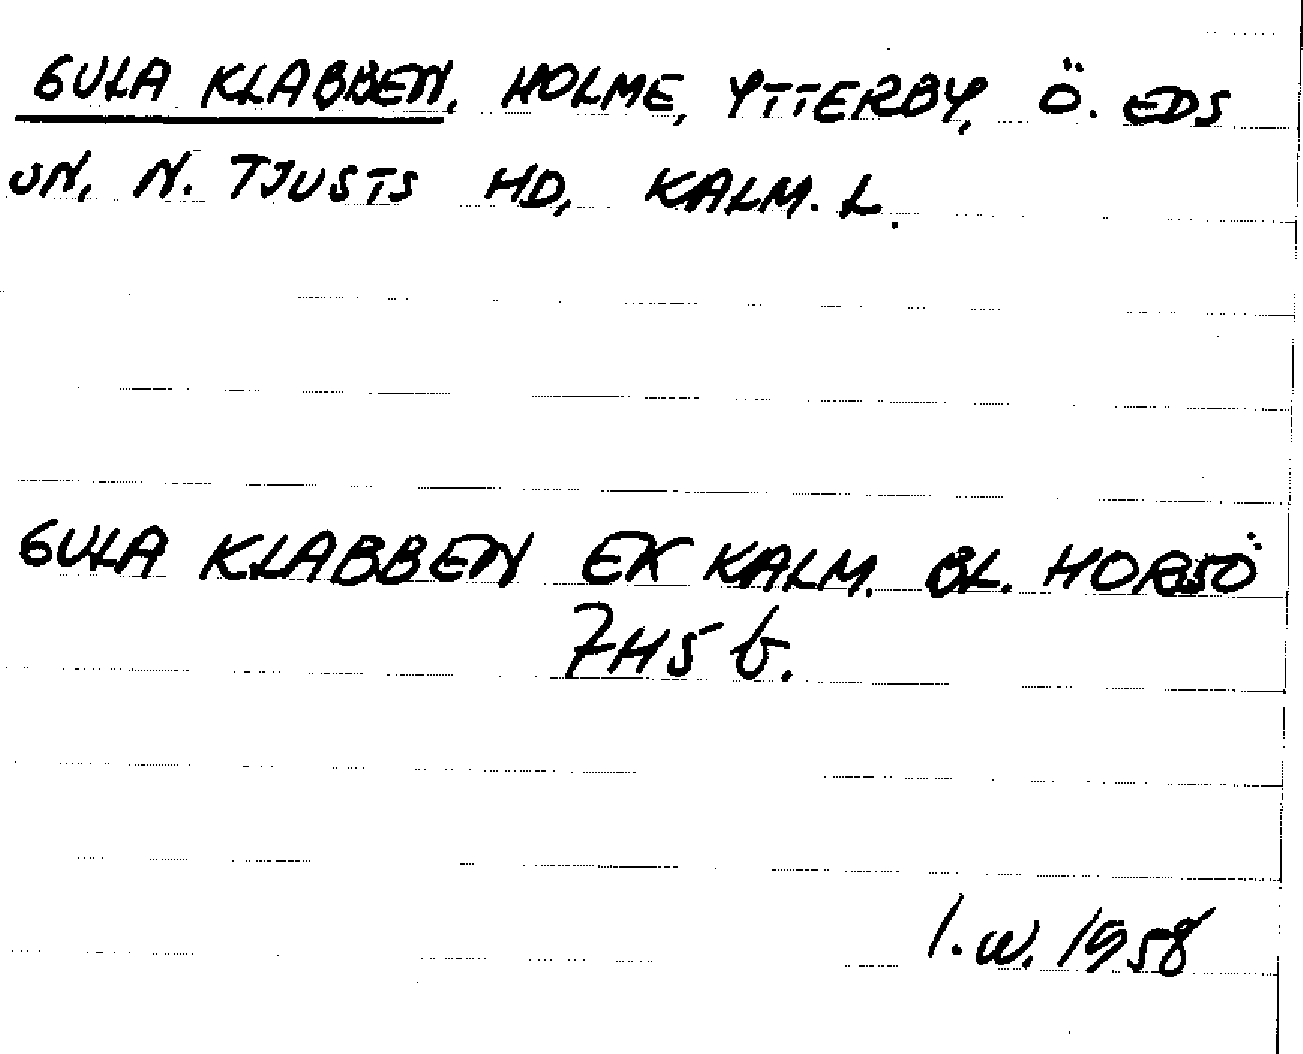 GULA KLABBEN. HOLME, YTTERBY, Ö. EDS
SN, N. TJUSTS HD, KALM. L.
GULA KLABBEN EK KALM. BL. HORSÖ
7H5 b.
I.W. 1958